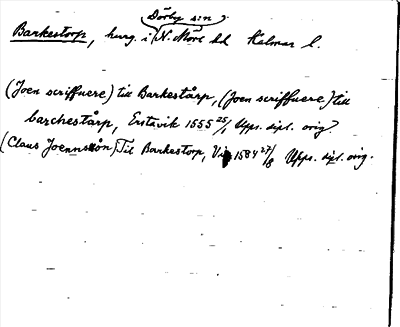 Dörby s:n
Barkestorp, herrg. i N. Möre hd Kalmar l.
(Joen scriffuere) till Barkestårp, (Joen scriffuere) till
barchestårp, Erstavik 1555 25/1 Upps. dipl. orig
(Claus Joennssøn) Til Barkestorp, 1584 27/8 Upps. dipl. orig.